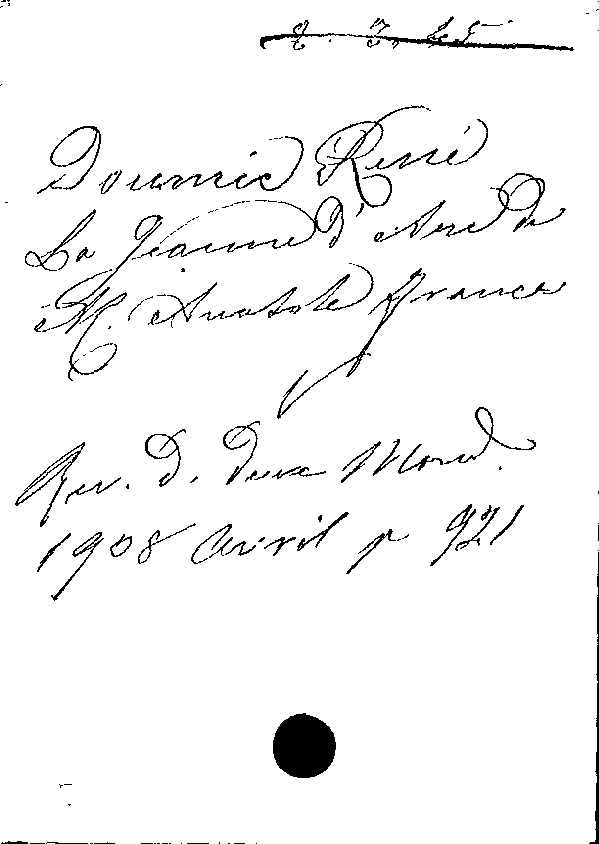 Doumic René
La Jeanne d'Arc de
M. Anatole France
Rev. d. deux Mond.
1908 avril p 921